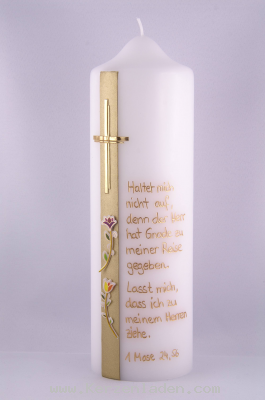 Haltet mich
nicht auf,
denn der Herr
hat Gnade zu
meiner Reise
gegeben.
Lasst mich,
dass ich zu
meinem Herren
ziehe.
1. Mose 24,56